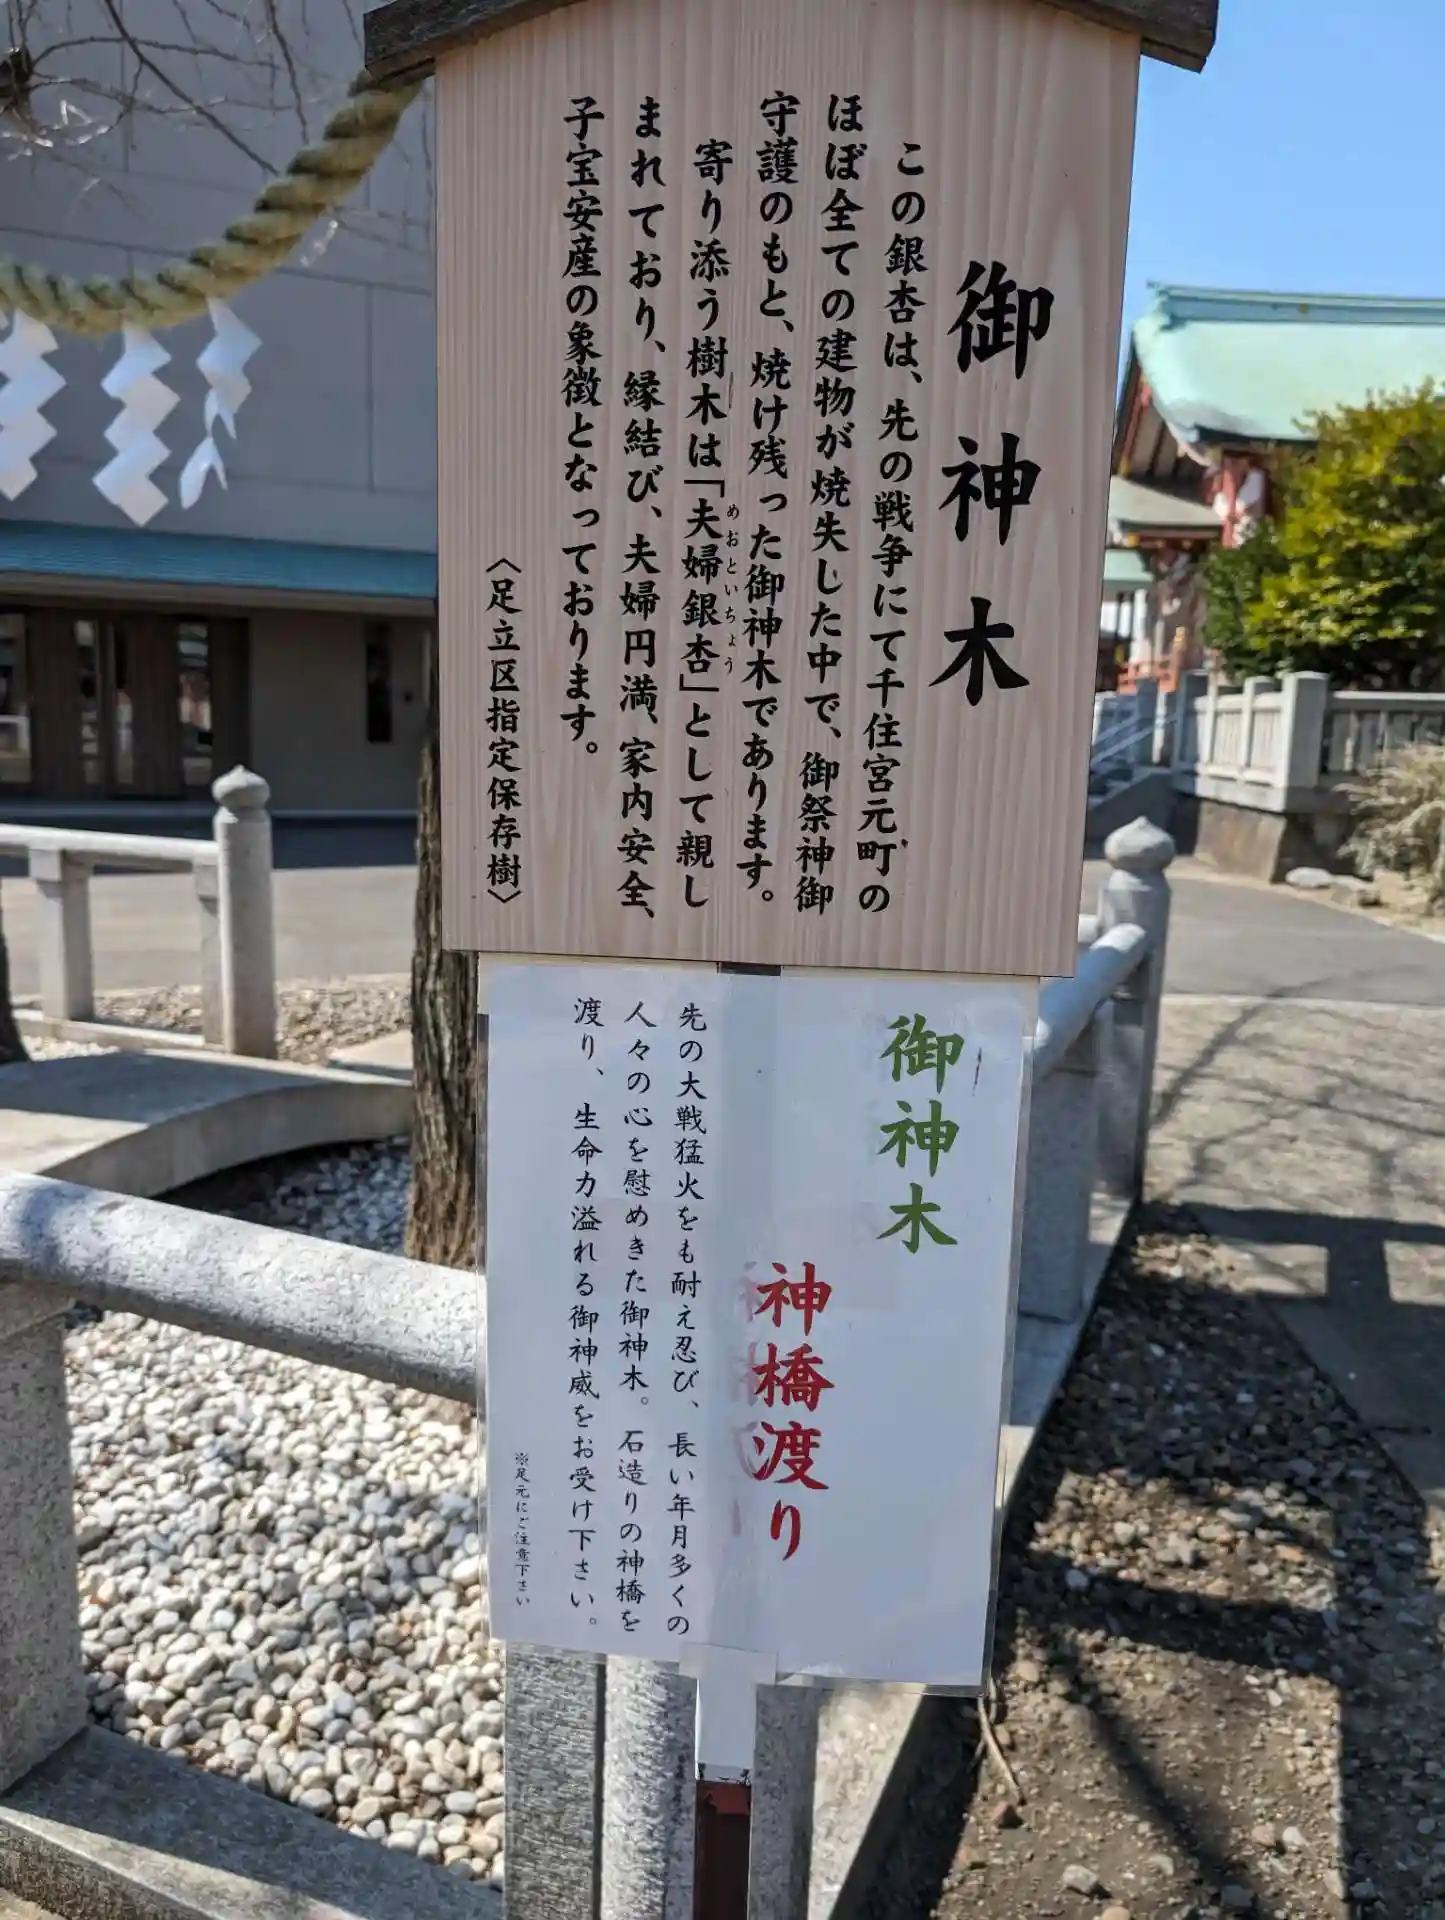 御神木
この銀杏は、先の戦争にて千住宮元町の
ほぼ全ての建物が焼失した中で、御祭神御
守護のもと、焼け残った御神木であります。
寄り添う樹木は「夫婦銀杏」として親し
めおといちょう
まれており、縁結び、夫婦円満、家内安全、
子宝安産の象徴となっております。
〈足立区指定保存樹〉
御神木
神橋渡り
先の大戦猛火をも耐え忍び、長い年月多くの
人々の心を慰めきた御神木。石造りの神橋を
渡り、生命力溢れる御神威をお受け下さい。
※足元にご注意下さい